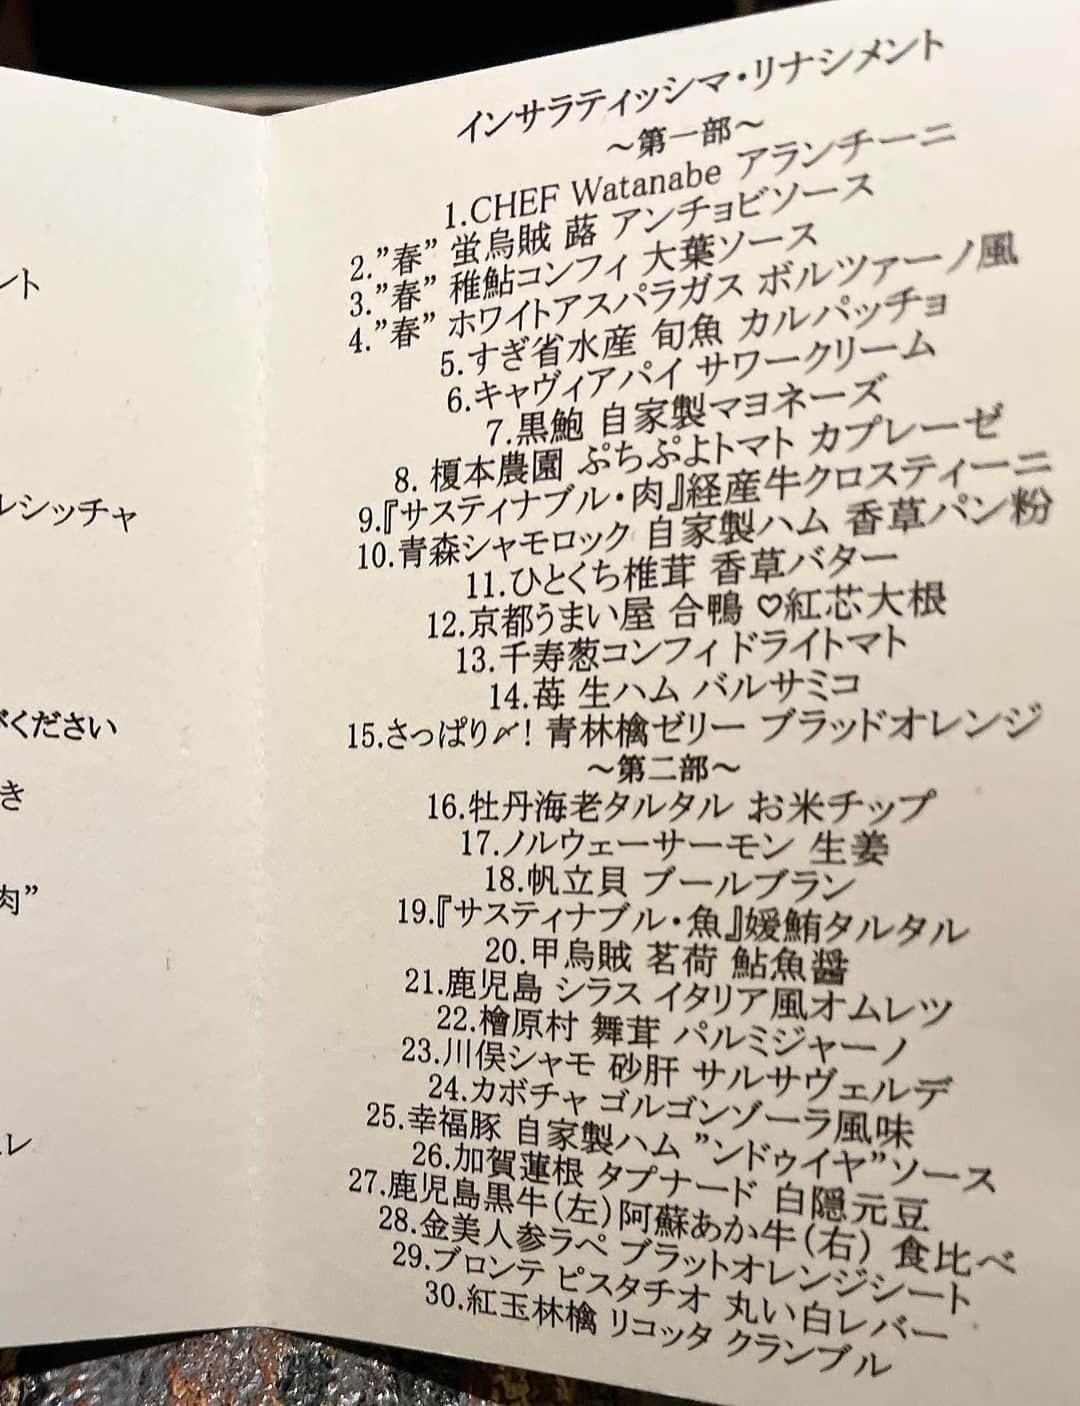 ント
レシッチャ
がください
き
肉”
レ
インサラティッシマ・リナシメント
～第一部～
1.CHEF Watanabe アランチーニ
2.”春” 蛍烏賊 蕗 アンチョビソース
3.”春” 稚鮎コンフィ 大葉ソース
4.”春” ホワイトアスパラガス ボルツァーノ風
5.すぎ省水産 旬魚 カルパッチョ
6.キャヴィアパイ サワークリーム
7.黒鮑 自家製マヨネーズ
8. 榎本農園 ぷちぷよトマト カプレーゼ
9.『サスティナブル・肉』経産牛クロスティーニ
10.青森シャモロック 自家製ハム 香草パン粉
11.ひとくち椎茸 香草バター
12.京都うまい屋 合鴨 ♡紅芯大根
13.千寿葱コンフィドライトマト
14.苺 生ハム バルサミコ
15.さっぱり〆! 青林檎ゼリー ブラッドオレンジ
～第二部～
16.牡丹海老タルタル お米チップ
17.ノルウェーサーモン 生姜
18.帆立貝 ブールブラン
19.『サスティナブル・魚』媛鮪タルタル
20.甲烏賊 茗荷 鮎魚醤
21.鹿児島 シラス イタリア風オムレツ
22.檜原村 舞茸 パルミジャーノ
23.川俣シャモ 砂肝 サルサヴェルデ
24.カボチャ ゴルゴンゾーラ風味
25.幸福豚 自家製ハム ”ンドゥイヤ”ソース
26.加賀蓮根 タプナード 白隠元豆
27.鹿児島黒牛(左)阿蘇あか牛(右) 食比べ
28.金美人参ラペ ブラットオレンジシート
29.ブロンテ ピスタチオ 丸い白レバー
30.紅玉林檎 リコッタ クランブル